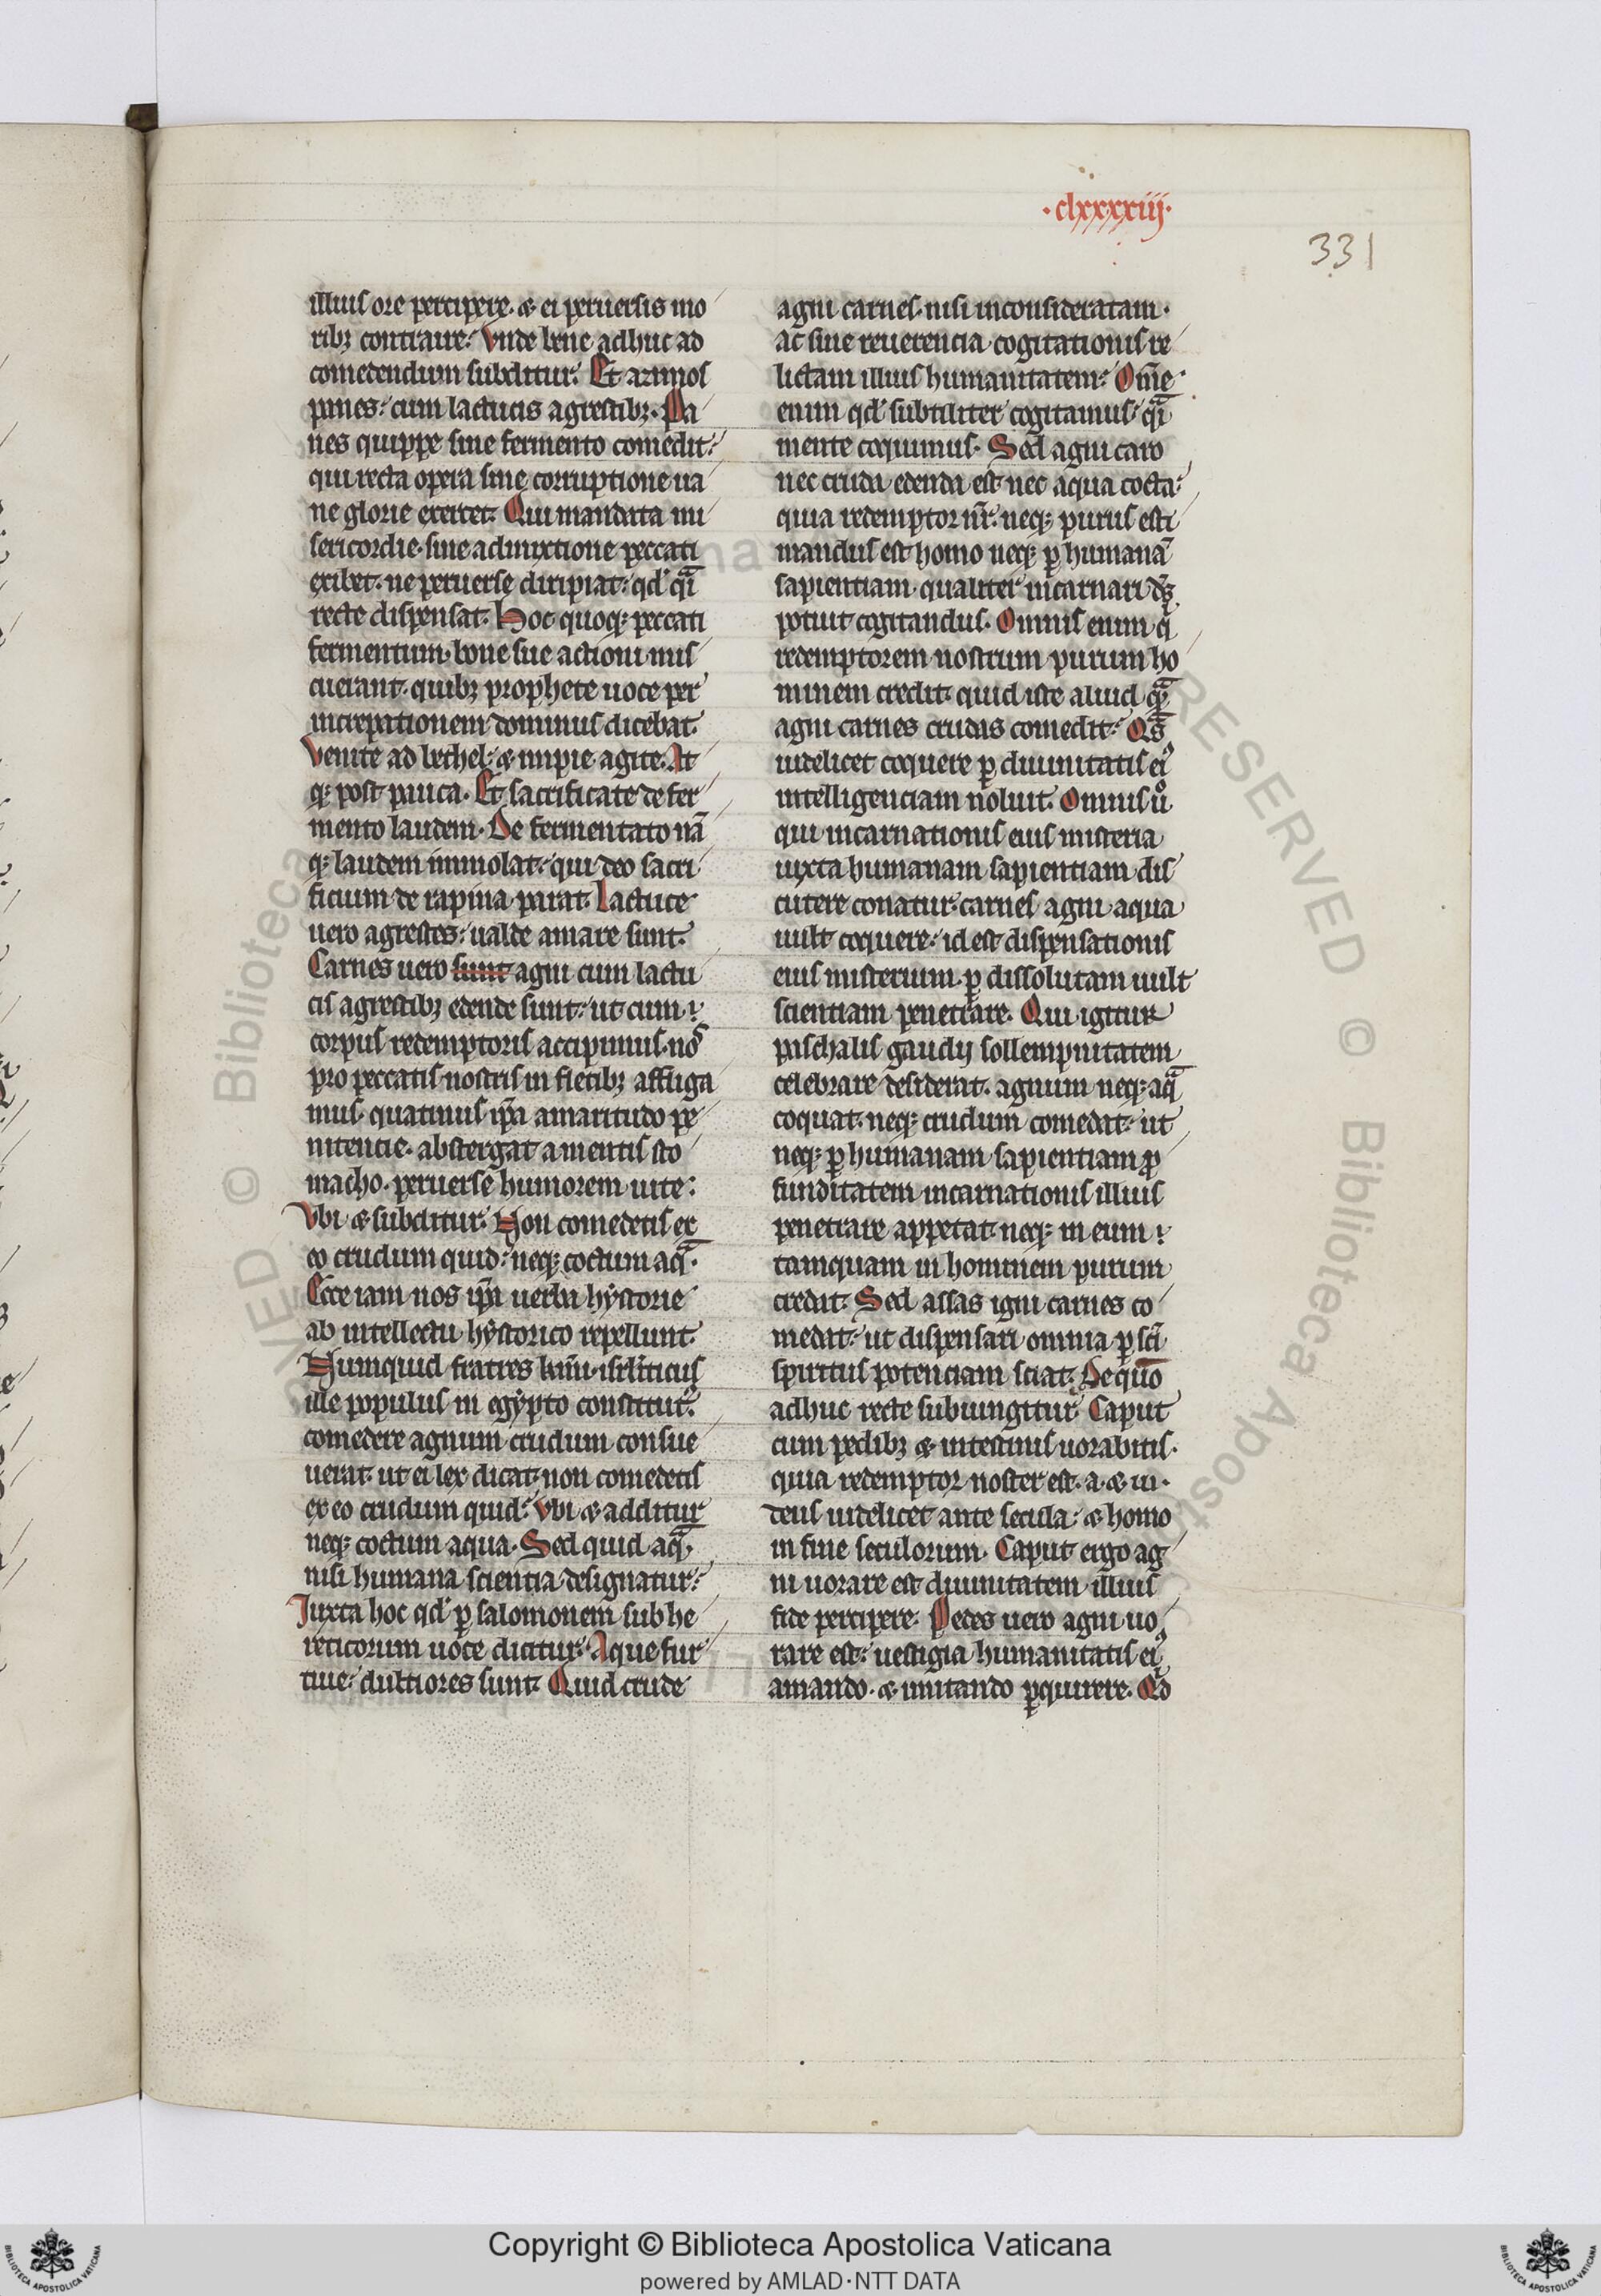 ·clxxxxiij·
331
illius ore percipere. & ei peruersis mo
ribꝫ contraire. Vnde bene adhuc ad
comedendum subditur. Et azimos
panes. cum lactucis agrestibꝫ. Pa
nes quippe sine fermento comedit.
qui recta opera sine corruptione ua
ne glorie exercet. Qui mandata mi
sericordie. sine admixtione peccati
exibet. ne peruerse diripiat. qd̛ q̅i
recte dispensat. Hoc quoqꝫ peccati
fermentum. bone sue actioni mis
cuerant. quibꝫ prophete uoce per
increpationem dominus dicebat.
Venite ad bethel. & impie agite. At
qꝫ post pauca. Et sacrificate de fer
mento laudem. De fermentato nā
qꝫ laudem immolat. qui deo sacri
ficium de rapina parat. Lactuce
uero agrestes. ualde amare sunt.
Carnes uero sunt agni cum lactu
cis agrestibꝫ edende sunt. ut cum
corpus redemptoris accipimus. nos
pro peccatis nostris in fletibꝫ affliga
mus. quatinus ip̅a amaritudo pe
nitencie. abstergat a mentis sto
macho. peruerse humorem uite.
Vbi & subditur. Non comedetis ex
eo crudum quid. neqꝫ coctum aq̅.
Ecce iam nos ip̅a uerba hẏstorie
ab intellectu hẏstorico repellunt.
Numquid fratres kr̅mi. isrl̅iticus
ille populus in egẏpto constitut᷒.
comedere agnum crudum consue
uerat. ut ei lex dicat. non comedetis
ex eo crudum quid. Vbi & additur
neqꝫ coctum aqua. Sed quid aq̅.
nisi humana scientia designatur.
Iuxta hoc qd̛ ꝑ salomonem sub he
reticorum uoce dicitur. Aque fur
tiue. dulciores sunt. Quid crude
agni carnes. nisi inconsideratam.
ac sine reuerencia cogitationis re
lictam illius humanitatem. Om̅e
enim qd̛ subtiliter cogitamus. q̅i
mente coquimus. Sed agni caro
nec cruda edenda est nec aqua cocta.
quia redemptor nr̅. neqꝫ purus esti
mandus est homo neqꝫ ꝑ humanā
sapientiam qualiter incarnari d̅s
potuit cogitandus. Omnis enim q̇
redemptorem nostrum purum ho
minem credit. quid iste aliud q̅
agni carnes crudas comedit. Qs̅
uidelicet coquere ꝑ diuinitatis ei᷒
intelligenciam noluit. Omnis u̇
qui incarnationis eius misteria
iuxta humanam sapientiam dis
cutere conatur. carnes agni aqua
uult coquere. id est dispensationis
eius misterium. ꝑ dissolutam uult
scientiam penetrare. Qui igitur
paschalis gaudij sollempnitatem
celebrare desiderat. agnum neqꝫ aq̅
coquat. neqꝫ crudum comedat. ut
neqꝫ ꝑ humanam sapientiam ꝓ
funditatem incarnationis illius
penetrare appetat. neqꝫ in eum
tamquam in hominem purum
credat. Sed assas igni carnes co
medat. ut dispensari omnia ꝑ sc̅i
spiritus potenciam sciat. De quo
adhuc recte subiungitur. Caput
cum pedibꝫ & intestinis uorabitis.
quia redemptor noster est. a. & ω.
deus uidelicet ante secula. & homo
in fine seculorum. Caput ergo ag
ni uorare est diuinitatem illius
fide percipere. Pedes uero agni uo
rare est. uestigia humanitatis ei᷒
amando. & imitando ꝑquirere. Qd
RESERVED © Biblioteca Apost
© Biblioteca
Copyright © Biblioteca Apostolica Vaticana
powered by AMLAD·NTT DATA
BIBLIOTECA APOSTOLICA VATICANA
BIBLIOTECA APOSTOLICA VATICANA